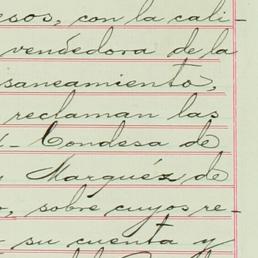 esos, con la cali-
vendedora de la
saneamiento,
reclaman las
Condesa de
Marquéz, de
o, sobre cuyos re-
su cuenta y